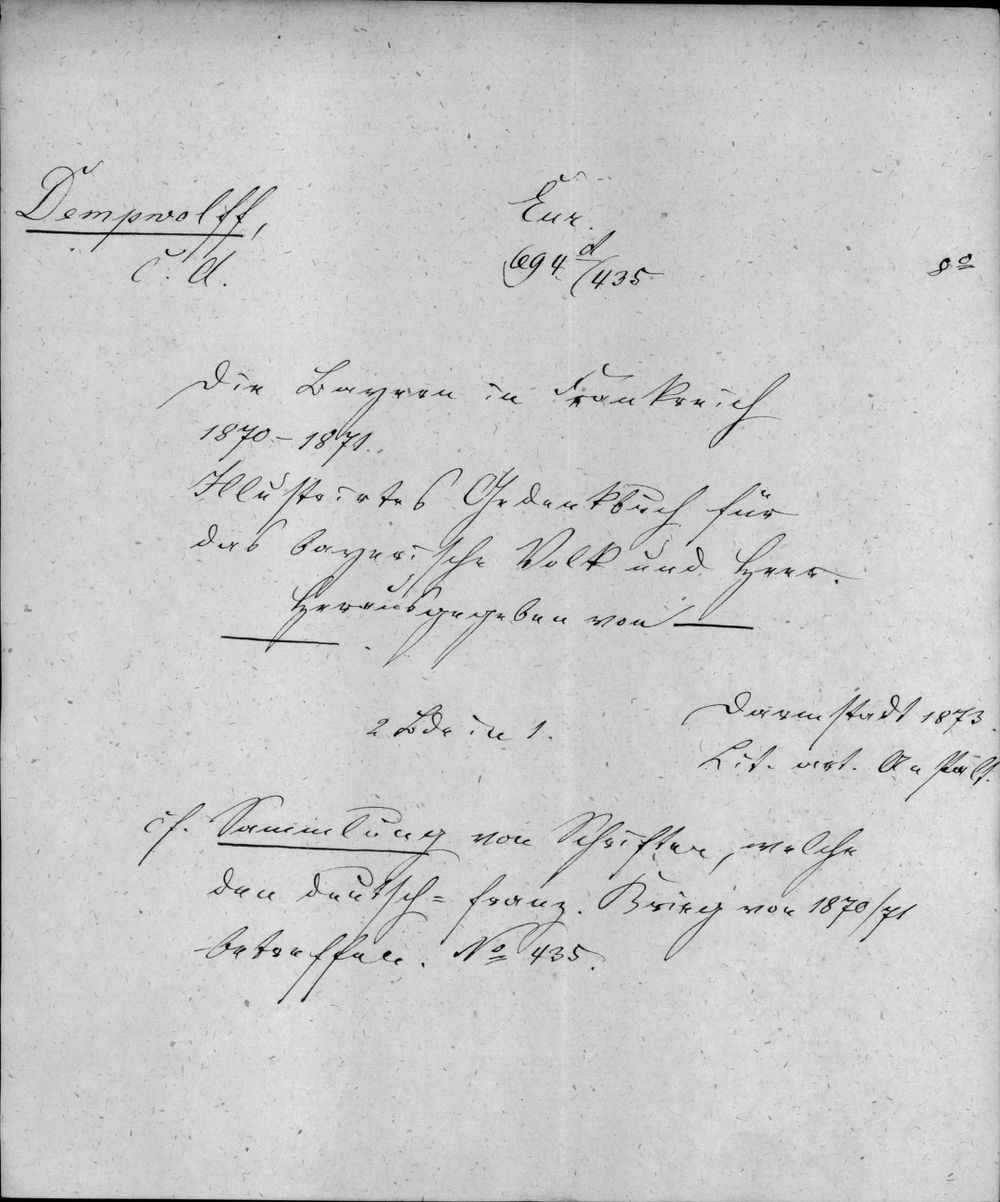 Dempwolff,
C. A.
Eur.
694 d/435
8º
Die Bayern in Frankreich
1870-1871.
Illustrirtes Gedenkbuch für
das bayerische Volk und Heer.
Herausgegeben von —
2 Bde in 1.
Darmstadt 1873.
Lit. art. Anstalt.
cf. Sammlung von Schriften, welche
den deutsch= franz. Krieg von 1870/71
betreffen. Nº 435.